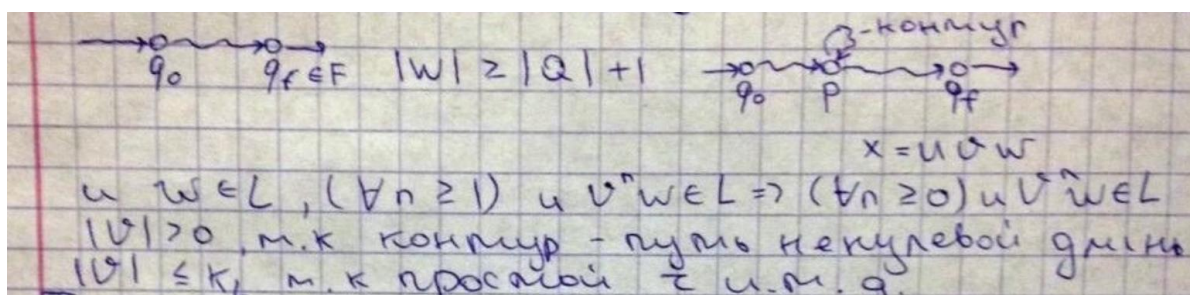 -контур
q₀ q_f ∈ F |W| ≥ |Q| + 1 q₀ p q_f
x = u v w
u w ∈ L, (∀n ≥ 1) u vⁿ w ∈ L => (∀n ≥ 0) u vⁿ w ∈ L
|v| > 0, т.к контур - путь ненулевой длины
|v| ≤ k, т.к простой и.т.д.